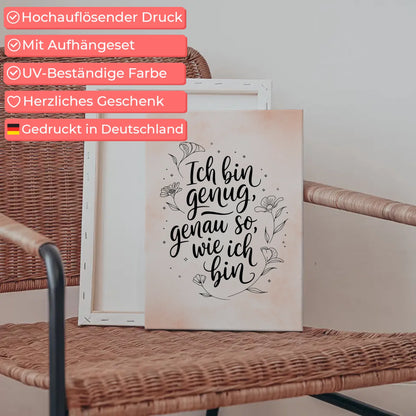 Hochauflösender Druck
Mit Aufhängeset
UV-Beständige Farbe
Herzliches Geschenk
Gedruckt in Deutschland
Ich bin
genug,
genau so,
wie ich
bin